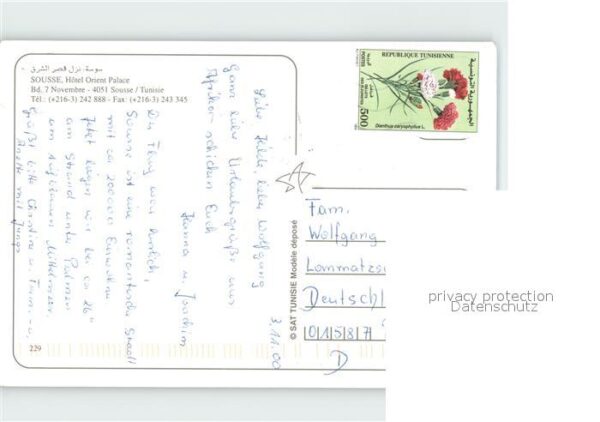 سوسة. نزل قصر الشرق
SOUSSE, Hôtel Orient Palace
Bd. 7 Novembre - 4051 Sousse / Tunisie
Tél.: (+216-3) 242 888 - Fax: (+216-3) 243 345
3.11.00
Liebe Hilde, lieber Wolfgang
Ganz liebe Urlaubsgrüße aus
Afrika schicken Euch
Hanna u. Joachim
Der Flug war herrlich,
Sousse ist eine romantische Stadt
mit ca 200000 Einwohn
Jetzt liegen wir bei ca 26°
am Strand unter Palmen
am Mittelmeer.
Grüßt bitte Christine u. Fam. u.
mit Jungs
229
© SAT TUNISIE Modèle déposé
SAT
REPUBLIQUE TUNISIENNE
الجمهورية التونسية
POSTES
500
Dianthus caryophyllus L.
Fam.
Wolfgang
Lommatzs
Deutschl
01587
D
privacy protection
Datenschutz